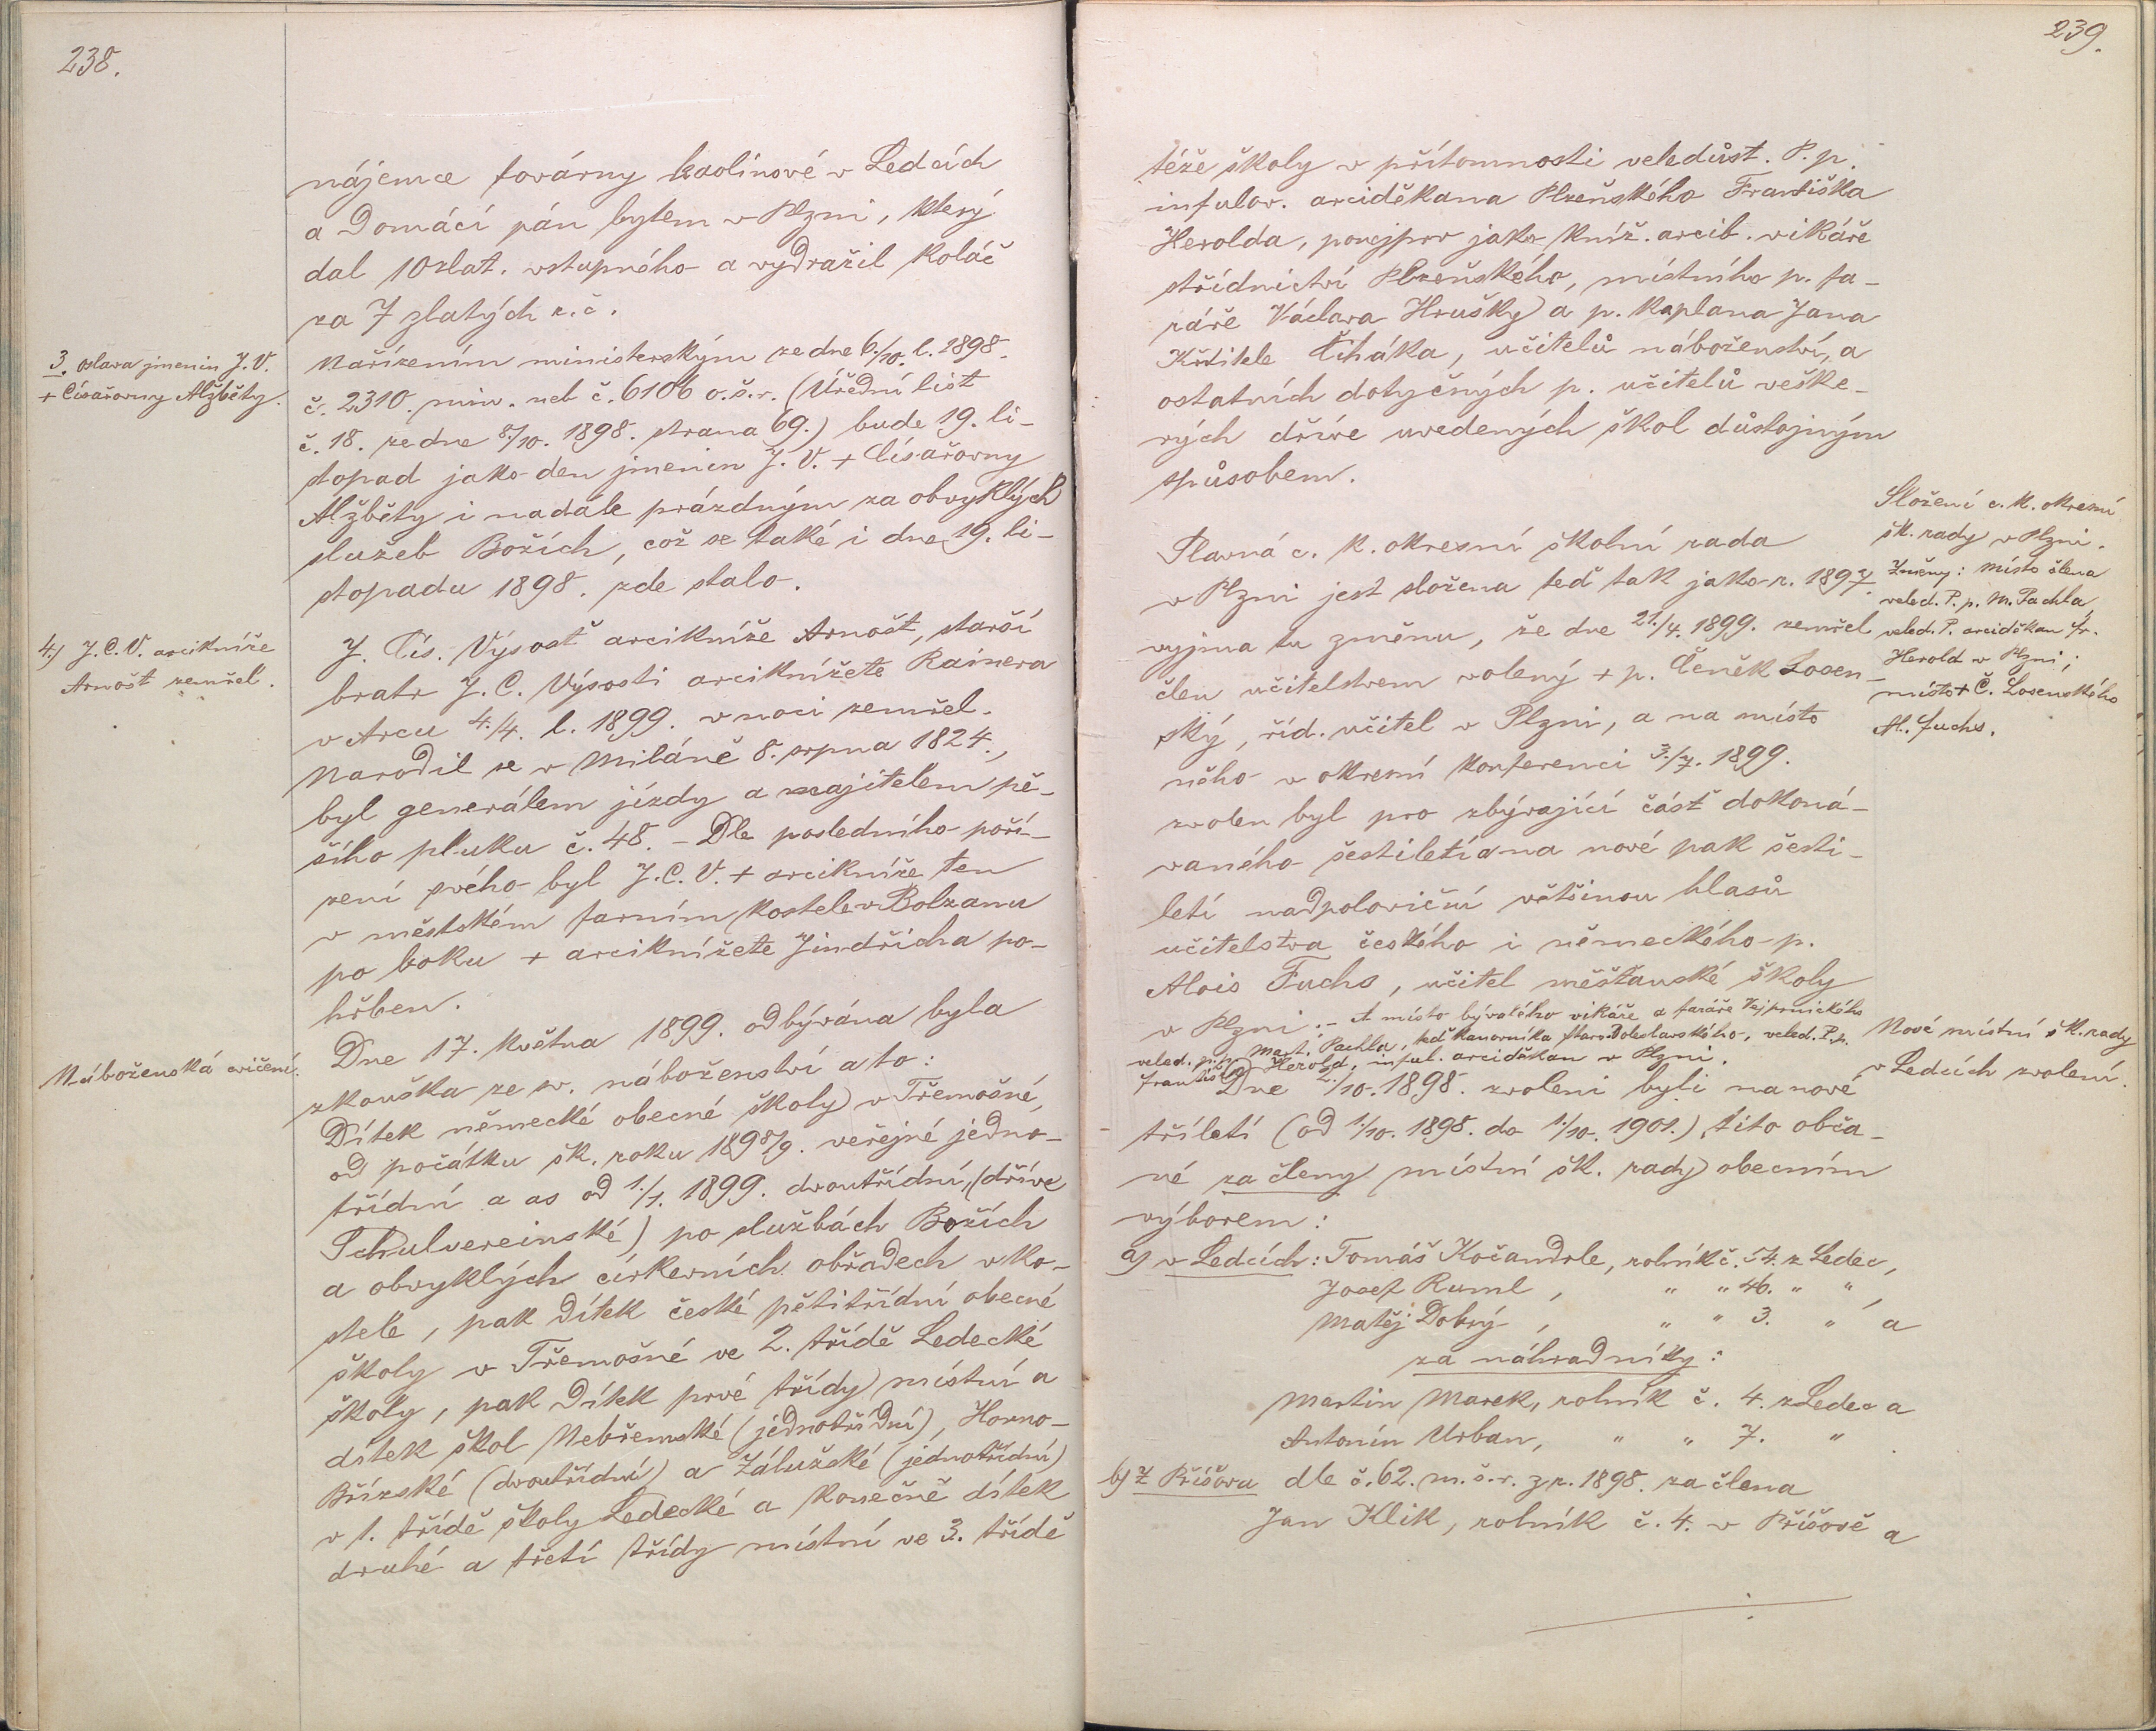 238.
nájemce továrny kaolinové v Ledcích
a Domácí pán bytem v Plzni, který
dal 10 zlat. vstupného a vydražil koláč
za 7 zlatých r. č.
3. oslava jmenin J. V.
+ Císařovny Alžběty.
Nařízením ministerským ze dne 6./10. l. 1898.
č. 2310. min. neb č. 6106 o. š. r. (Úřední list
č. 18. ze dne 8./10. 1898. strana 69.) bude 19. li-
stopad jako den jmenin J. V. + Císařovny
Alžběty i nadále prázdným za obvyklých
služeb Božích, což se také i dne 19. li-
stopadu 1898. zde stalo.
4.) J. C. V. arcikníže
Arnošt zemřel.
J. Cís. Výsosť arcikníže Arnošt, starší
bratr J. C. Výsosti arciknížete Rainera
v Arcu 4./4. l. 1899. v noci zemřel.
Narodil se v Miláně 8. srpna 1824.,
byl generálem jízdy a majitelem pě-
šího pluku č. 48. – Dle posledního poří-
zení svého byl J. C. V. + arcikníže ten
v městském farním kostele v Bolzanu
po boku + arciknížete Jindřicha po-
hřben.
Náboženská cvičení.
Dne 17. května 1899. odbývána byla
zkouška ze sv. náboženství a to:
Dítek německé obecné školy v Třemošné,
od počátku šk. roku 1898/9. veřejné jedno-
třídní a as od 1./1. 1899. dvoutřídní, (dříve
Schulvereinské) po službách Božích
a obvyklých církevních obřadech v ko-
stele, pak dítek české pětitřídní obecné
školy v Třemošné ve 2. třídě Ledecké
školy, pak Dítek prvé třídy místní a
dítek škol Nebřemské (jednotřídní), Horno-
Břízské (dvoutřídní) a Zálužské (jednotřídní)
v 1. třídě školy Ledecké a konečně dítek
druhé a třetí třídy místní ve 3. třídě
239.
téže školy v přítomnosti veledůst. P. p.
infulov. arciděkana Plzeňského Františka
Herolda, ponejprv jako kníž. arcib. vikáře
střídnictví Plzeňského, místního p. fa-
ráře Václava Hrušky a p. kaplana Jana
Křtitele Čiháka, učitelů náboženství, a
ostatních dotyčných p. učitelů veške-
rých dříve uvedených škol důstojným
spůsobem.
Složení c. k. okresní
šk. rady v Plzni.
Změny: místo člena
veled. P. p. M. Pachla,
veled. P. arciděkan Fr.
Herold v Plzni;
místo + Č. Losenského
Al. Fuchs.
Slavná c. k. okresní školní rada
v Plzni jest složena teď tak jako r. 1897.
vyjma tu změnu, že dne 21./4. 1899. zemřel
člen učitelstvem volený + p. Čeněk Losen-
ský, říd. učitel v Plzni, a na místo
něho v okresní konferenci 3./7. 1899.
zvolen byl pro zbývající čásť dokoná-
vaného šestiletí a na nové pak šesti-
letí nadpoloviční většinou hlasů
učitelstva českého i německého p.
Alois Fuchs, učitel měšťanské školy
v Plzni. – A místo bývalého vikáře a faráře Vejprnického
veled. p. p. Mart. Pachla, teď kanovníka Staroboleslavského, veled. P. p.
František Herold, inful. arciděkan v Plzni.
Nové místní šk. rady
v Ledcích zvolení.
Dne 2./10. 1898. zvoleni byli na nové
tříletí (od 1./10. 1898. do 1./10. 1901.) tito obča-
né za členy místní šk. rady obecním
výborem:
a) v Ledcích: Tomáš Kočandrle, rolník č. 54. z Ledec,
Josef Ruml, " " 46. " ",
Matěj Dobrý, " " 3. " a
za náhradníky:
Martin Marek, rolník č. 4. z Ledec a
Antonín Urban, " " 7. " .
b) z Příšova dle č. 62. m. š. r. z r. 1898. za člena
Jan Klik, rolník č. 4. v Příšově a